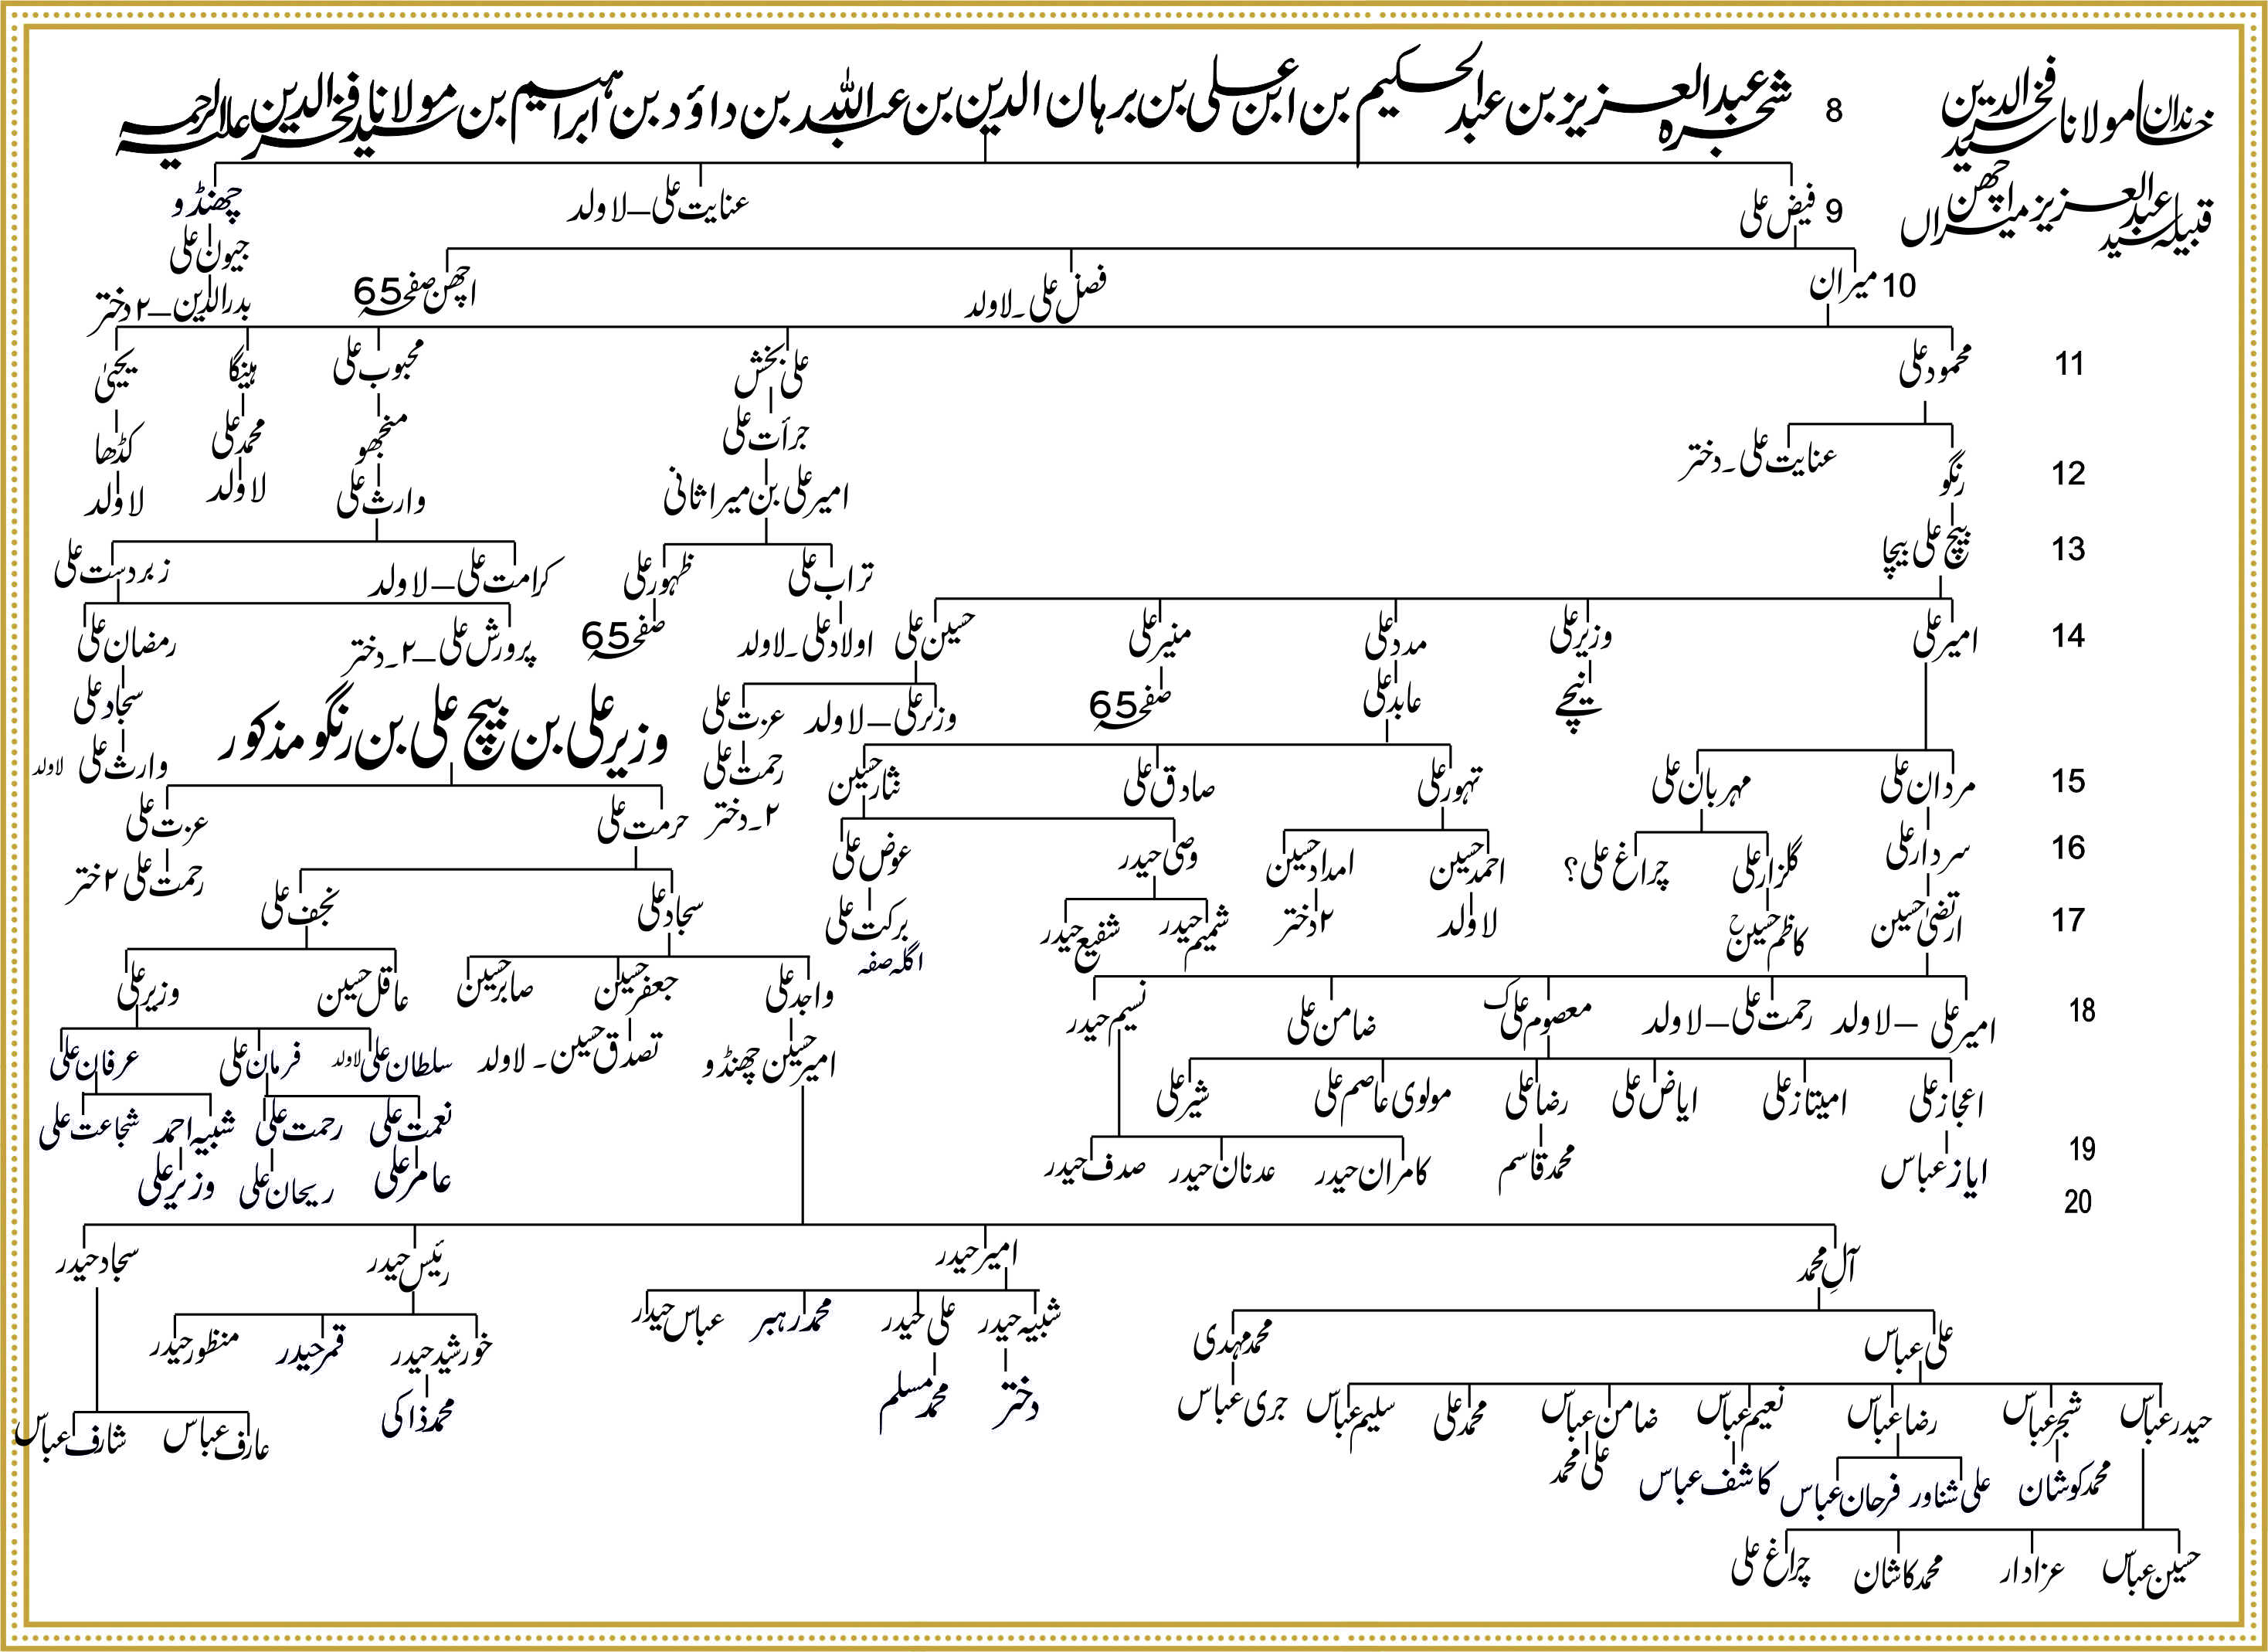 خاندان مولانا سید فخرالدین
قبیلہ سید عبدالعزیز میراں اچھن
8 شجرہ عبدالعزیز بن عبدالحکیم بن ابن علی بن برہان الدین بن عبداللہ بن داؤد بن ابراہیم بن مولانا سید فخرالدین علیہ الرحمہ
9 فیض علی عنایت علی – لاولد چھنڈو
جیون علی
10 میران فضل علی۔لاولد اچھن صفحہ 65 بدرالدین – ۲ دختر
11 محمود علی علی بخش محبوب علی ہینگا یحییٰ
جرأت علی منجھو محمد علی کڈھا
12 رنگو عنایت علی۔دختر امیر علی بن میرا ثانی وارث علی لاولد لاولد
13 پیچ علی بیچا تراب علی ظہور علی کرامت علی – لاولد زبردست علی
14 امیر علی وزیر علی مدد علی منیر علی حسین علی اولاد علی۔لاولد صفحہ 65 پرورش علی – ۲۔دختر رمضان علی
نیچے عابد علی صفحہ 65 وزیر علی – لاولد عزت علی سجاد علی
وزیر علی بن پیچ علی بن رنگو مذکور
15 مردان علی مہربان علی تہور علی صادق علی نثار حسین رحمت علی وارث علی لاولد
۲۔دختر حرمت علی عزت علی
16 سردار علی گلزار علی چراغ علی؟ احمد حسین امداد حسین وصی حیدر عوض علی رحمت علی ۲ ختر
17 ارتضیٰ حسین کاظم حسین لاولد ۲ دختر شمیم حیدر شفیع حیدر برکت علی سجاد علی نجف علی
اگلہ صفہ
18 امیر علی – لاولد رحمت علی – لاولد معصوم علی ضامن علی نسیم حیدر واجد علی جعفر حسین صابر حسین عاقل حسین وزیر علی
امیر حسین چھنڈو تصدق حسین۔ لاولد سلطان علی لاولد فرمان علی عرفان علی
اعجاز علی امیتاز علی ایاض علی رضا علی مولوی عاصم علی شیر علی نعمت علی رحمت علی شبیہ احمد شجاعت علی
19 ایاز عباس محمد قاسم کامران حیدر عدنان حیدر صدف حیدر عامر علی ریحان علی وزیر علی
20
آل محمد امیر حیدر رئیس حیدر سجاد حیدر
علی عباس محمد مہدی شبیہ حیدر علی حیدر محمد رہبر عباس حیدر خورشید حیدر قمر حیدر منظور حیدر
حیدر عباس شجر عباس رضا عباس نعیم عباس ضامن عباس محمد علی سلیم عباس جری عباس دختر محمد مسلم محمد ذاکی عارف عباس شارف عباس
محمد کوشان علی شناور فرحان عباس کاشف عباس علی محمد
حسین عباس عزادار محمد کاشان چراغ علی